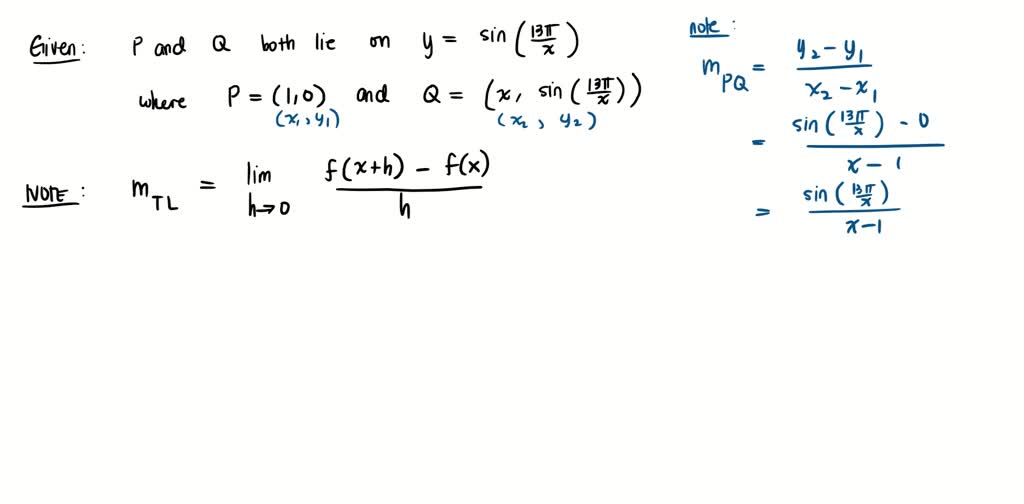 Given: P and Q both lie on y = sin(13π/x)
where P = (1,0) and Q = (x, sin(13π/x))
(x₁, y₁) (x₂, y₂)
NOTE: m_TL = lim h→0 f(x+h) − f(x) / h
note:
m_PQ = y₂ − y₁ / x₂ − x₁
= sin(13π/x) − 0 / x − 1
= sin(13π/x) / x − 1